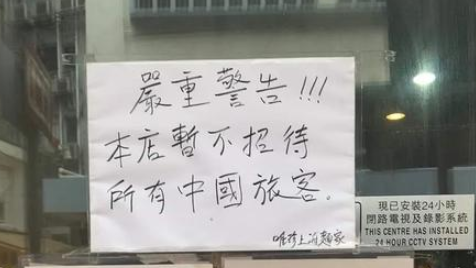 嚴重警告!!!
本店暫不招待
所有中國旅客.
唯珍上海麵家
現已安裝24小時
閉路電視及錄影系統
THIS CENTRE HAS INSTALLED
24 HOUR CCTV SYSTEM